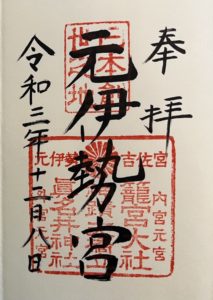 奉拝
日本創
世之地
元伊勢宮
令和三年十二月八日
元伊勢 吉佐宮
内宮元宮
籠宮大社
眞名井神社